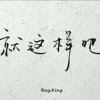 就这样吧
Ring King